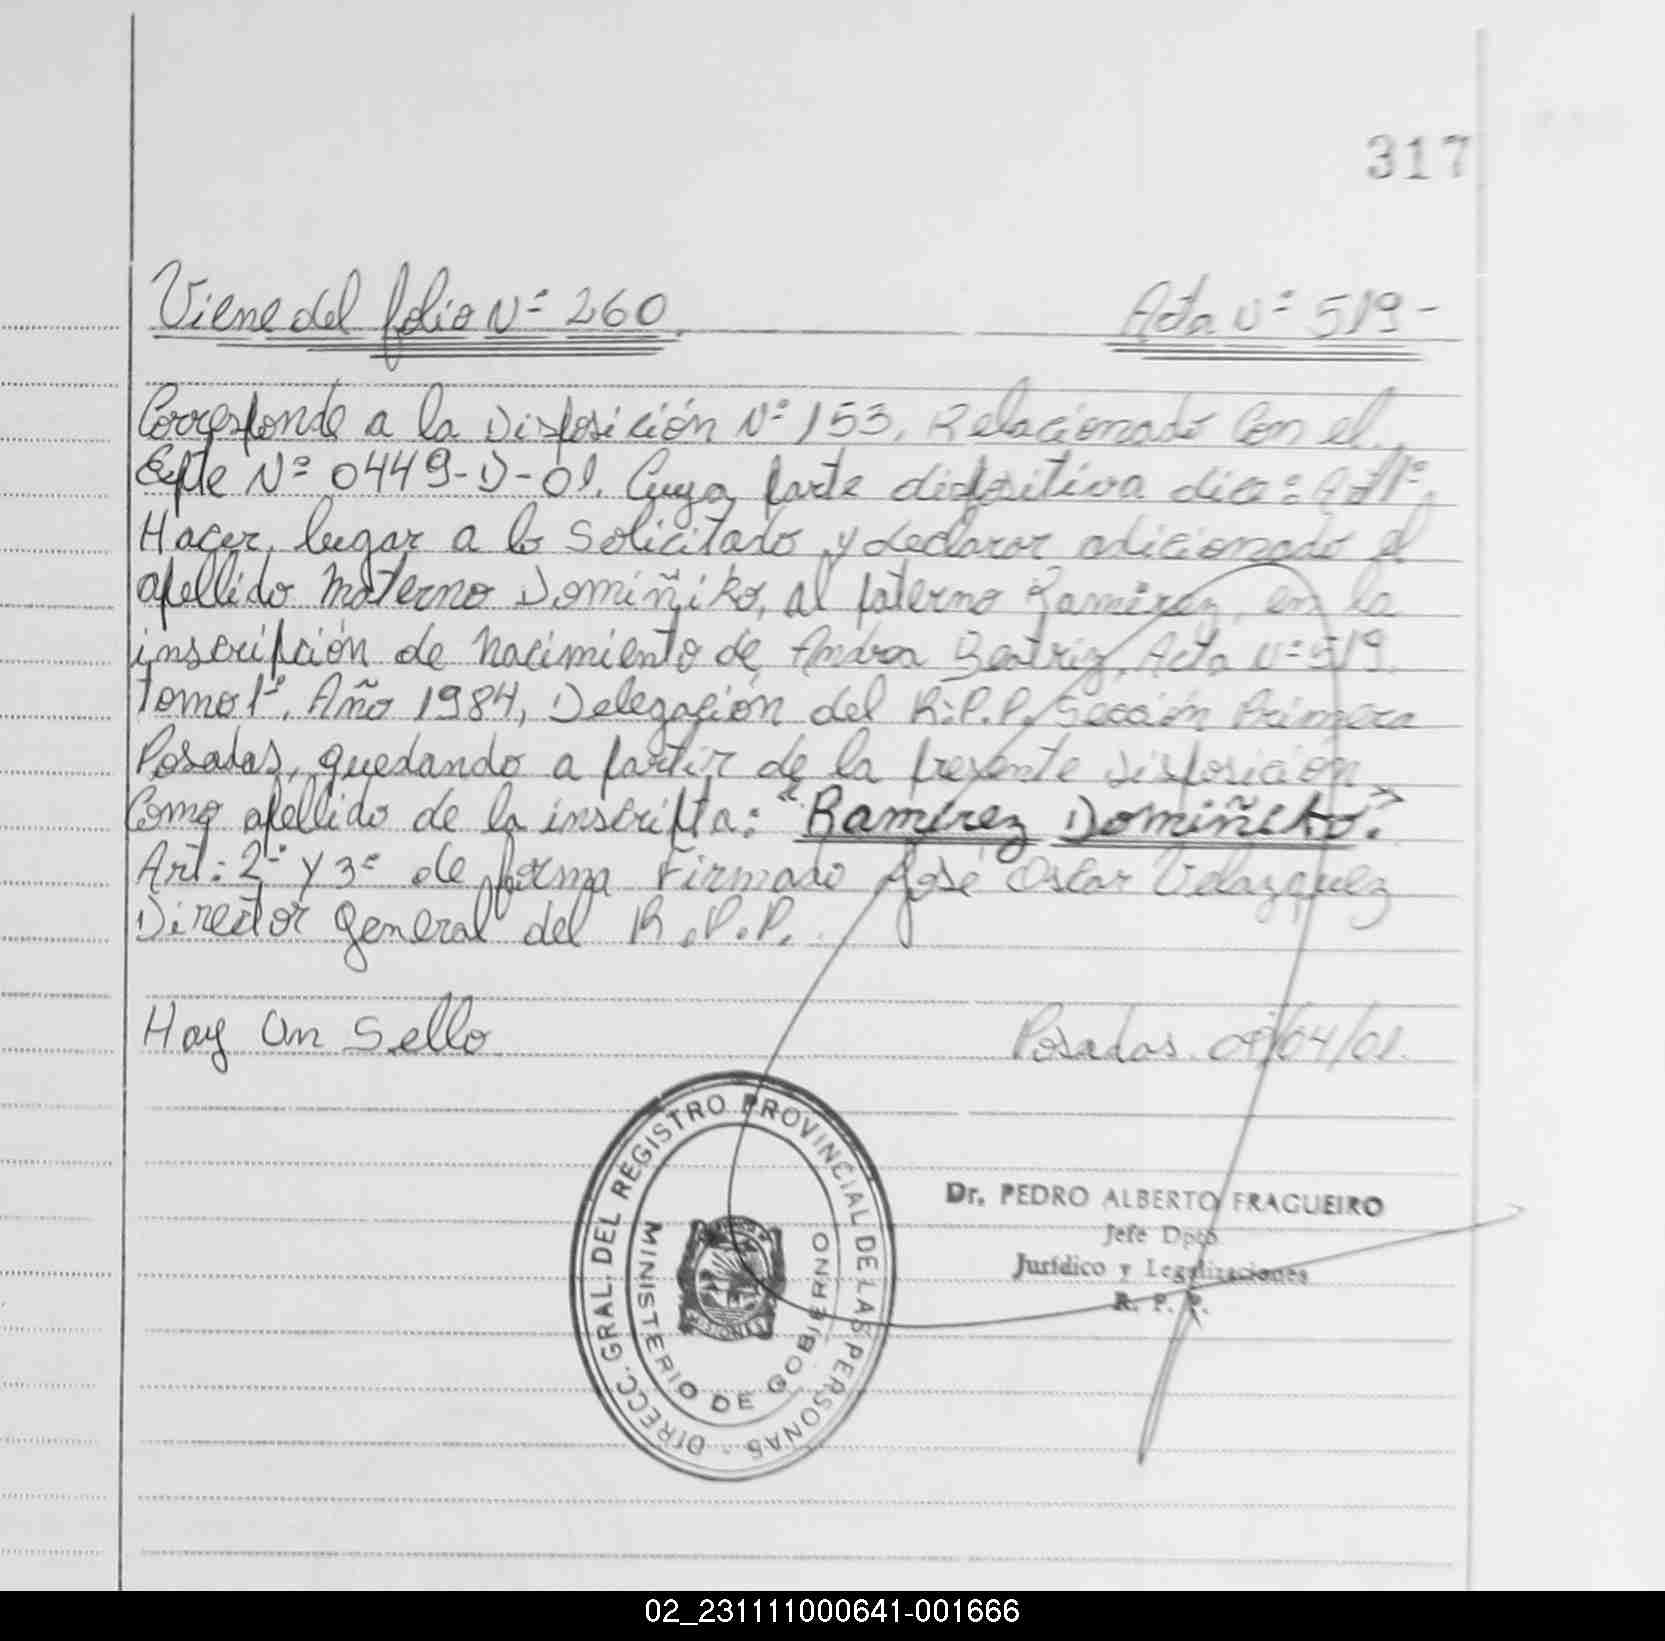 317
Viene del folio Nº 260. Acta Nº 519-
Corresponde a la Disposición Nº 153, Relacionado Con el
Expte Nº 0449-D-01. Cuya parte dispositiva dice: Art 1º.
Hacer lugar a lo Solicitado y declarar adicionado el
apellido Materno Domiñiko, al paterno Ramirez, en la
inscripción de nacimiento de, Beatriz, Acta Nº 519.
Tomo 1º, Año 1984, Delegación del R.P.P. Sección Primera
Posadas, quedando a partir de la presente disposición
Como apellido de la inscripta: "Ramirez Domiñiko".
Art: 2º y 3º de forma Firmado José Oscar Velazquez
Director General del R.P.P.
Hay Un Sello Posadas.
DIRECC. GRAL. DEL REGISTRO PROVINCIAL DE LAS PERSONAS -
MINISTERIO DE GOBIERNO
MISIONES
Dr. PEDRO ALBERTO FRAGUEIRO
Jefe Dpto
Jurídico y Legalizaciones
R. P. P.
02_231111000641-001666